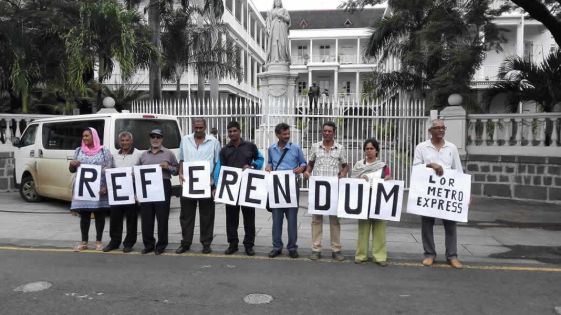 REFERENDUM
LOR
METRO
EXPRESS